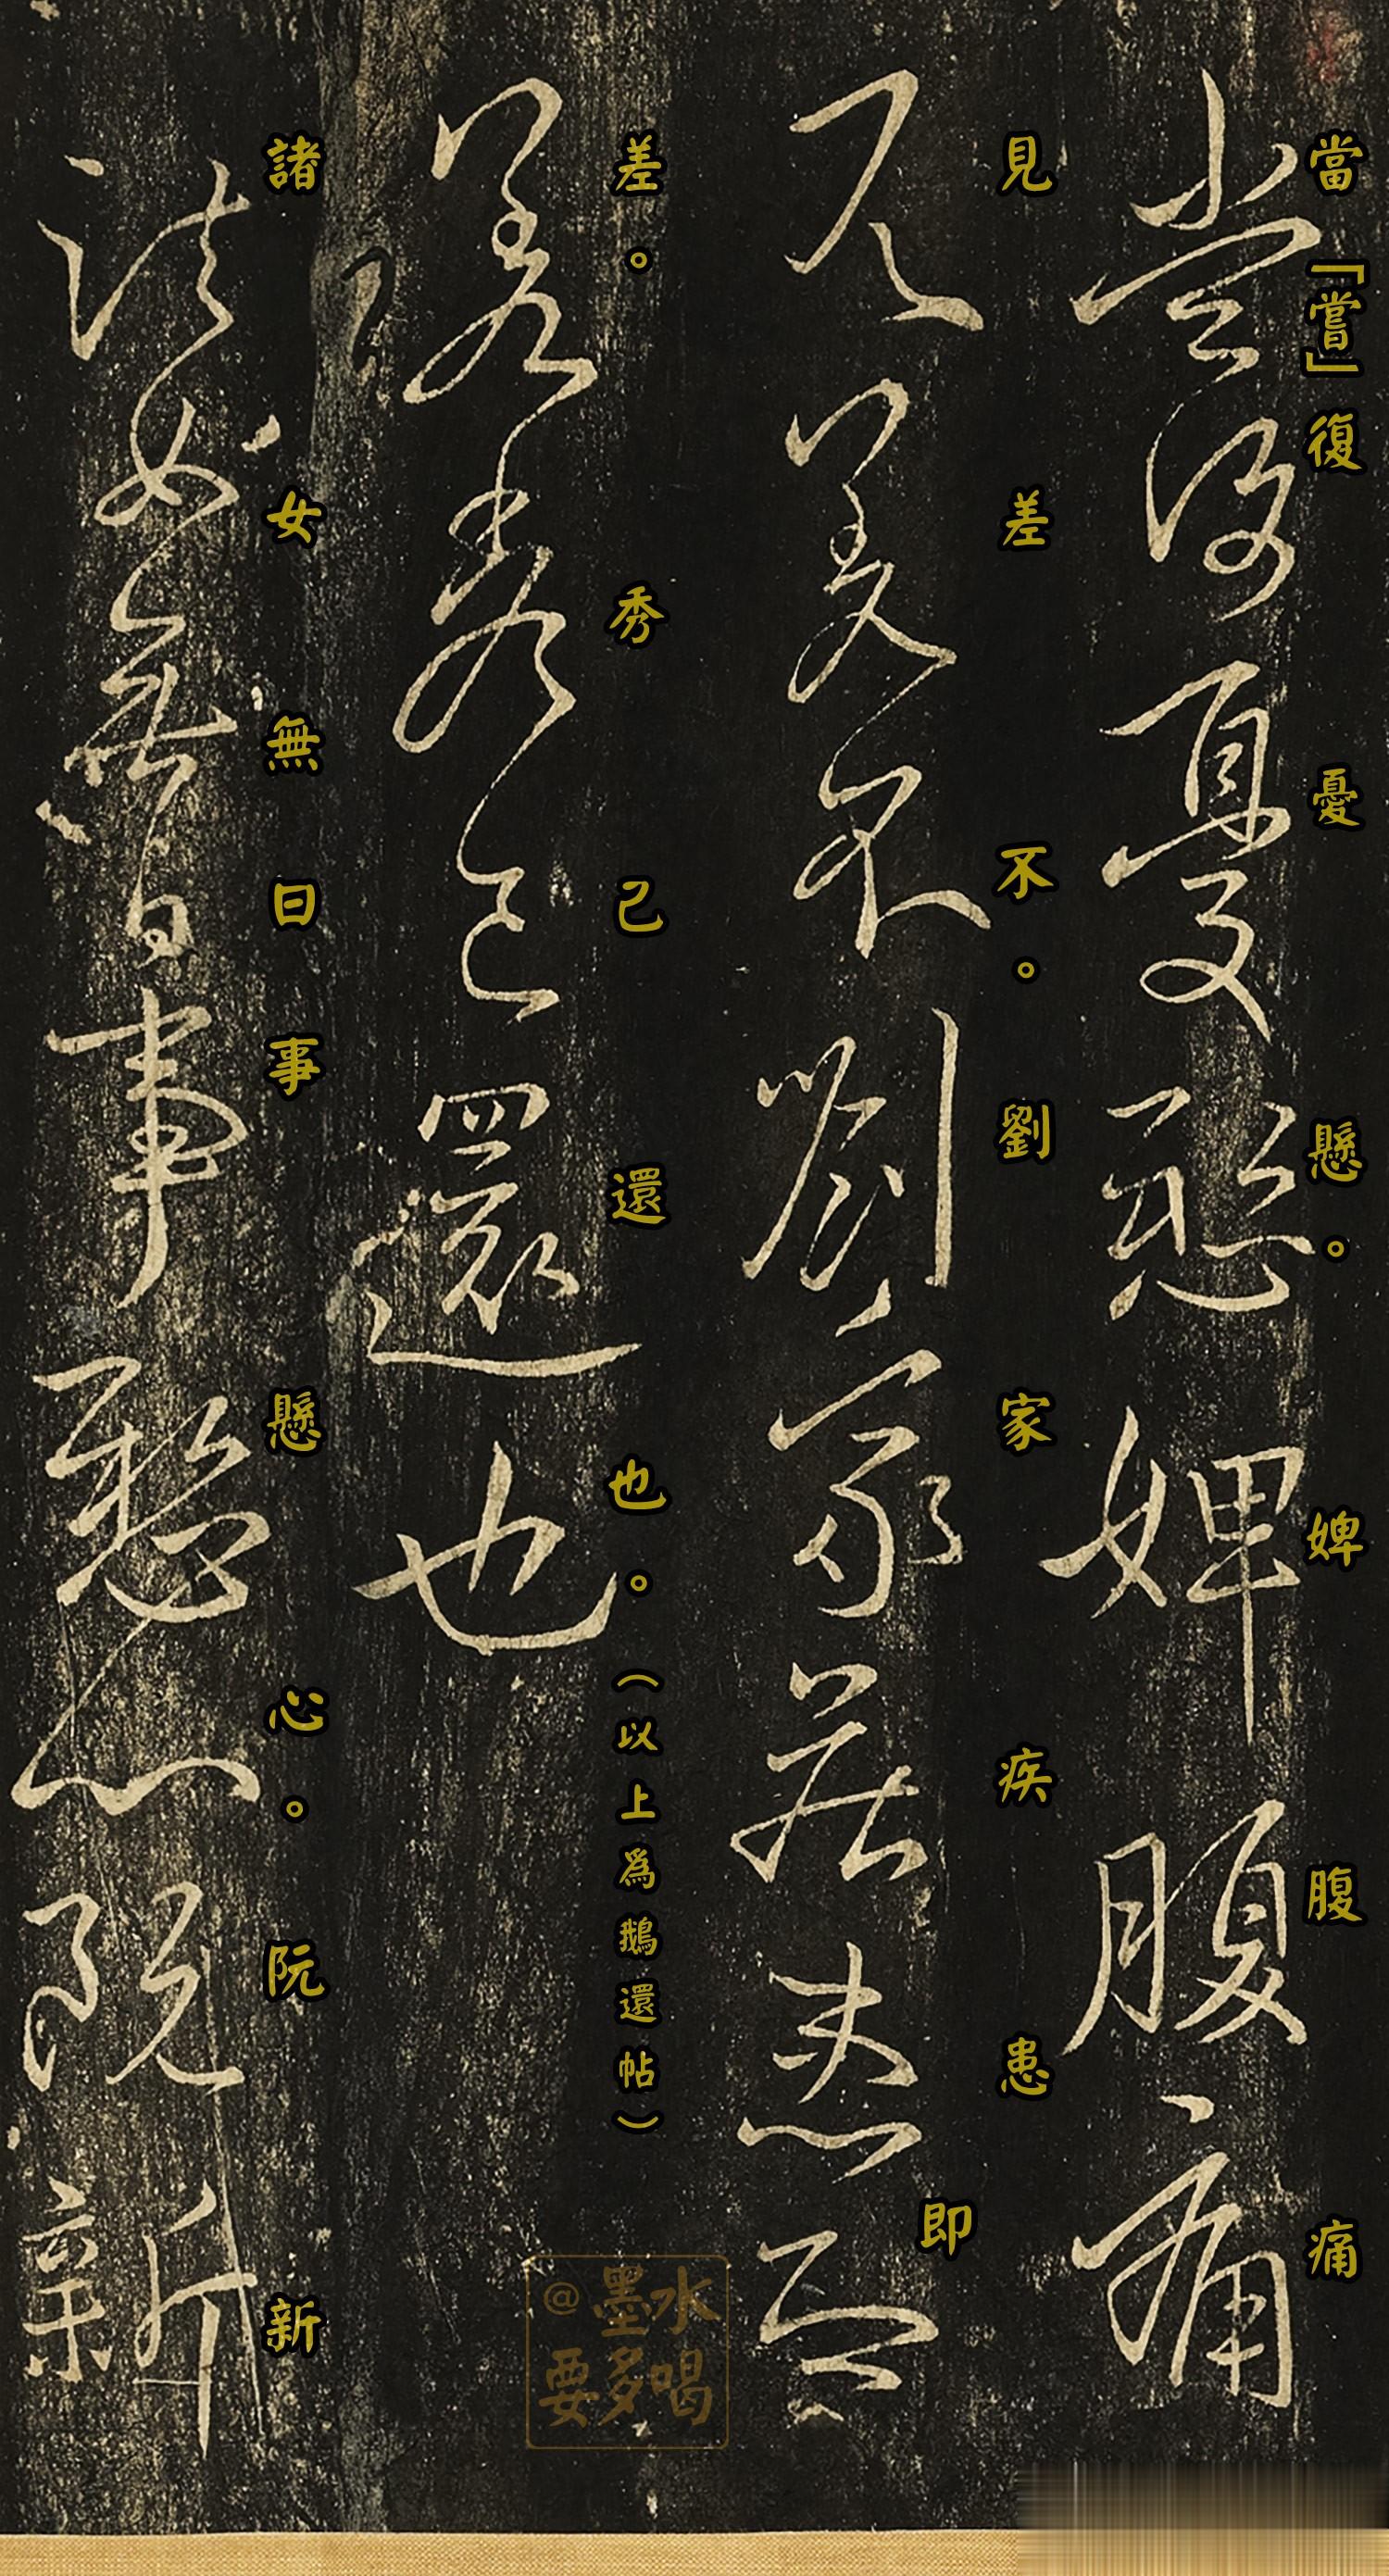 當「嘗」復憂懸。婢腹痛
見差不。劉家疾患即
差。秀己還也。（以上為鵝還帖）
諸女無日事懸心。阮新
@墨水
要多喝